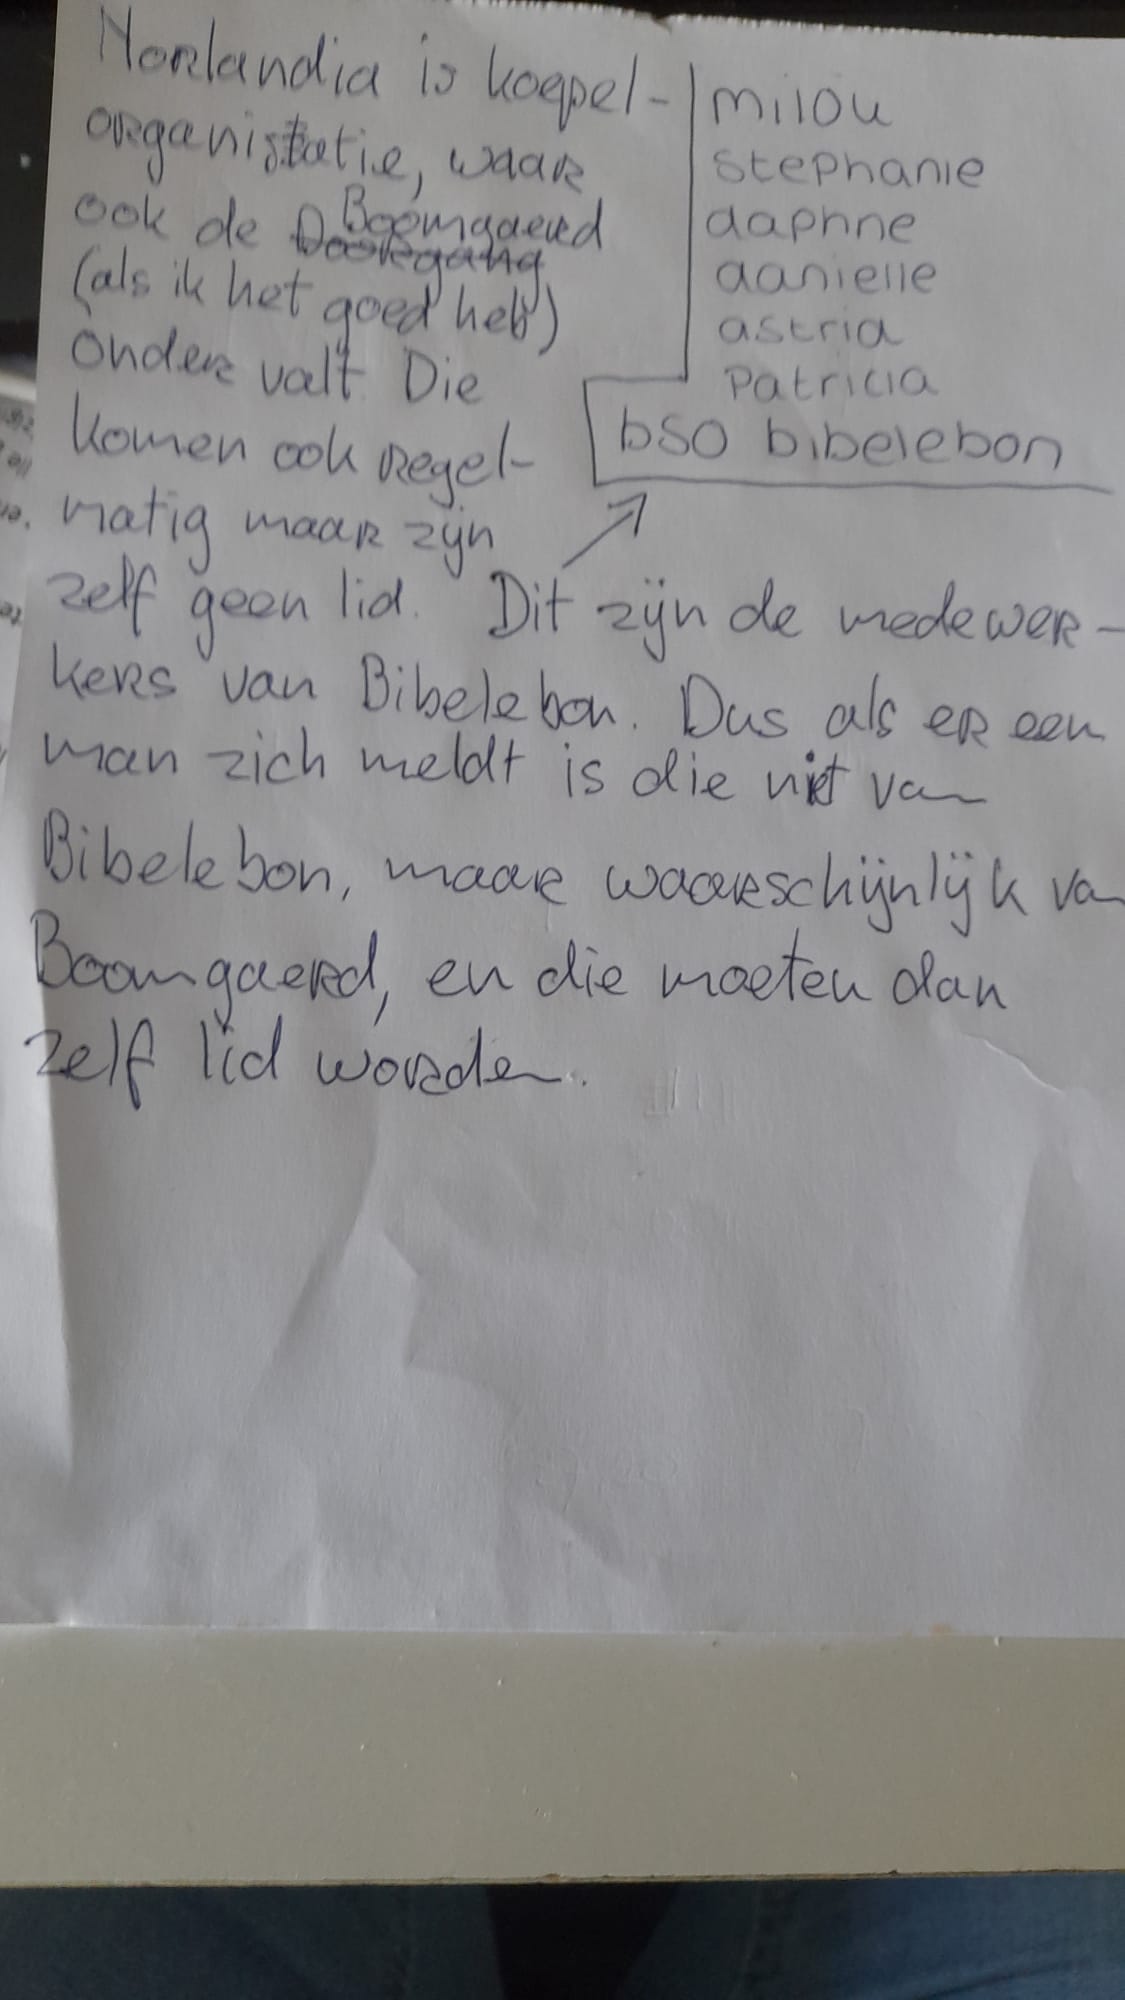 Norlandia is koepel-
organisatie, waar
ook de Boomgaerd
(als ik het goed heb)
onder valt. Die
komen ook regel-
matig maar zijn
zelf geen lid. Dit zijn de medewer-
kers van Bibelebon. Dus als er een
man zich meldt is die niet van
Bibelebon, maar waarschijnlijk van
Boomgaerd, en die moeten dan
zelf lid worden.
milou
stephanie
daphne
danielle
astrid
patricia
bso bibelebon